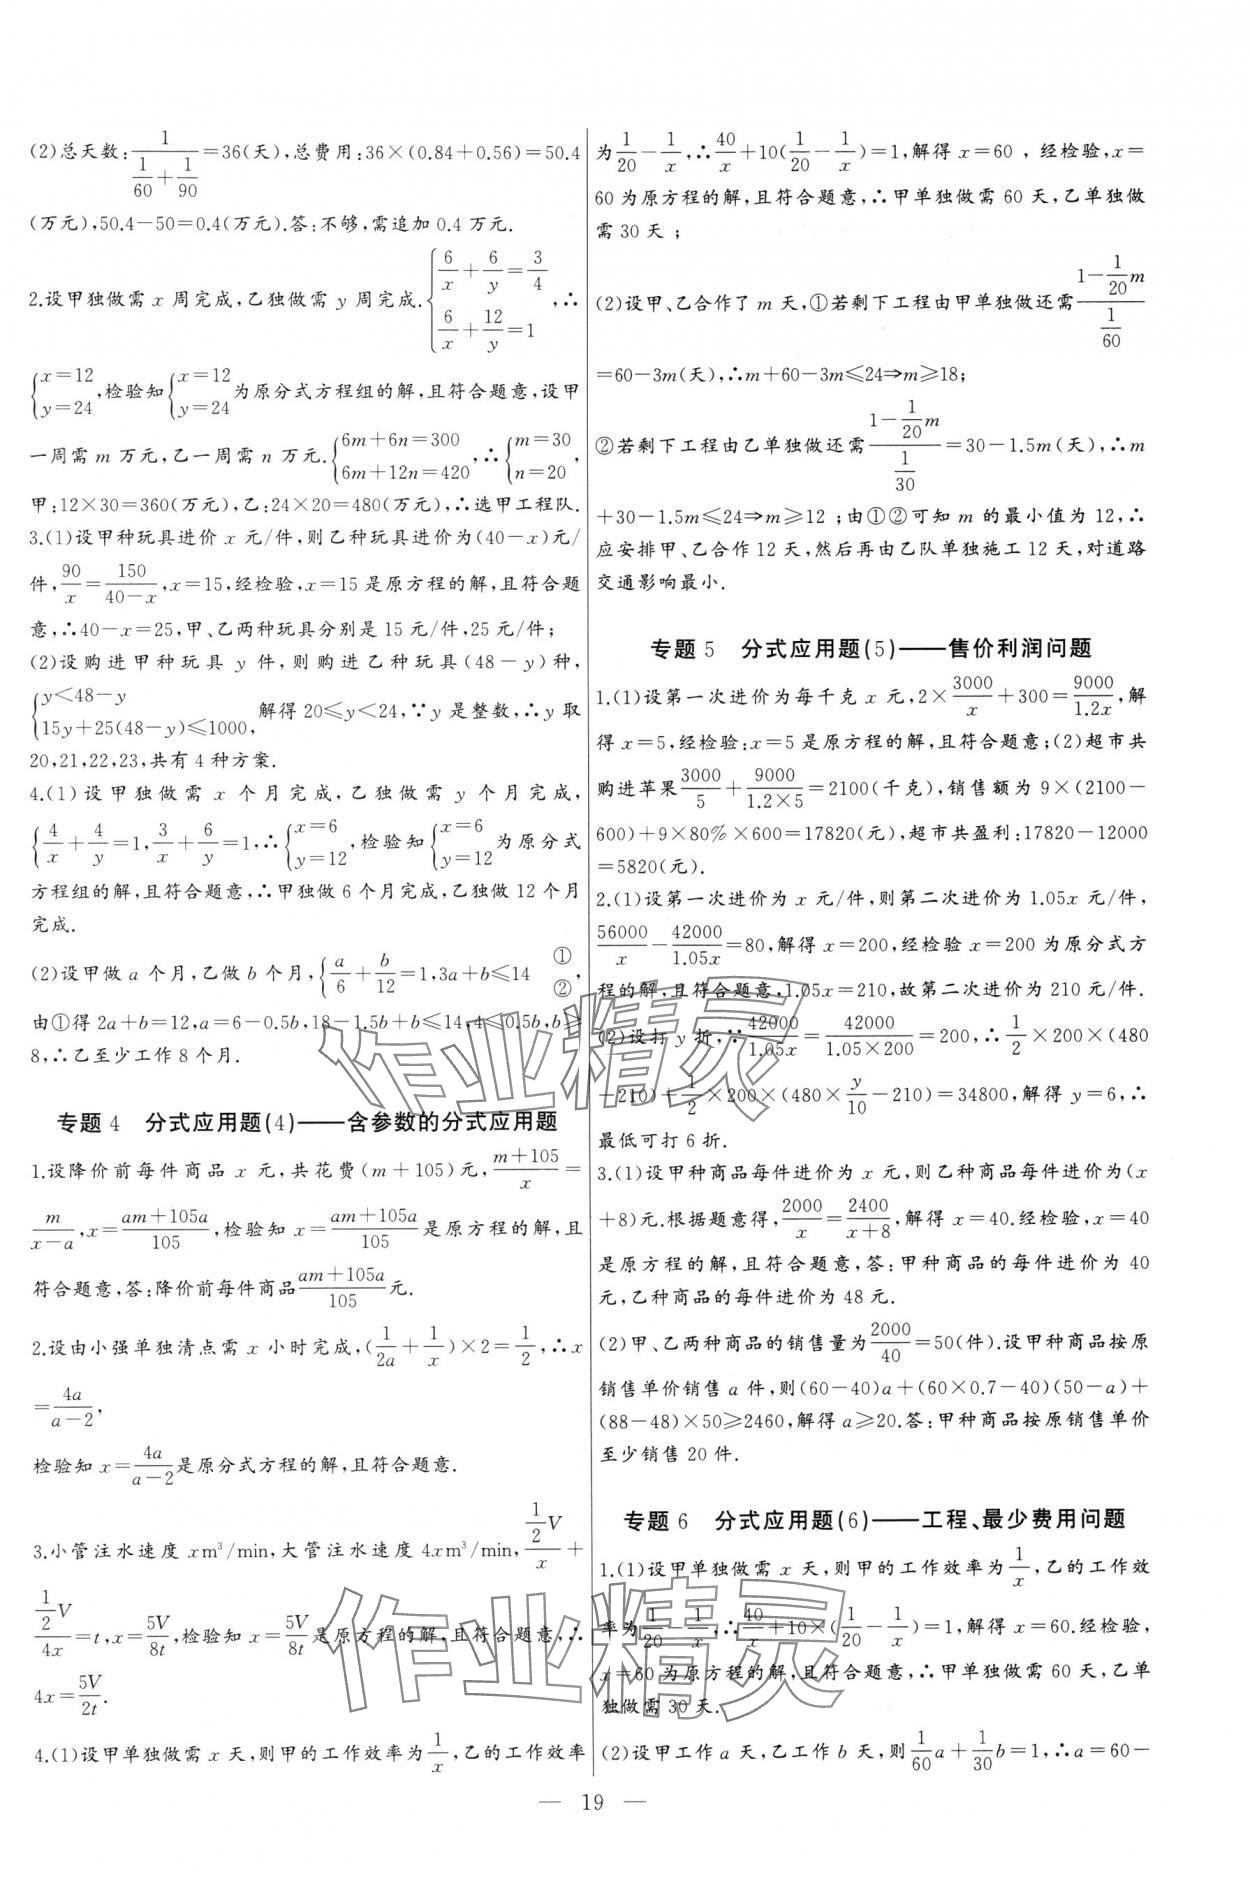 (2)总天数:$\frac{1}{\frac{1}{60}+\frac{1}{90}}$=36(天),总费用:36×(0.84+0.56)=50.4
(万元),50.4-50=0.4(万元).答:不够,需追加0.4万元.
2.设甲独做需 x 周完成,乙独做需 y 周完成.$\begin{cases}\frac{6}{x}+\frac{6}{y}=\frac{3}{4}\\\frac{6}{x}+\frac{12}{y}=1\end{cases}$,∴
$\begin{cases}x=12\\y=24\end{cases}$,检验知$\begin{cases}x=12\\y=24\end{cases}$为原分式方程组的解,且符合题意,设甲
一周需 m 万元,乙一周需 n 万元.$\begin{cases}6m+6n=300\\6m+12n=420\end{cases}$,∴$\begin{cases}m=30\\n=20\end{cases}$,
甲:12×30=360(万元),乙:24×20=480(万元),∴选甲工程队.
3.(1)设甲种玩具进价 x 元/件,则乙种玩具进价为(40-x)元/
件,$\frac{90}{x}=\frac{150}{40-x}$,x=15,经检验,x=15是原方程的解,且符合题
意,∴40-x=25,甲、乙两种玩具分别是15元/件,25元/件;
(2)设购进甲种玩具 y 件,则购进乙种玩具(48-y)种,
$\begin{cases}y<48-y\\15y+25(48-y)≤1000\end{cases}$,解得20≤y<24,∵y 是整数,∴y 取
20,21,22,23,共有4种方案.
4.(1)设甲独做需 x 个月完成,乙独做需 y 个月完成,
{$\frac{4}{x}+\frac{4}{y}=1,\frac{3}{x}+\frac{6}{y}=1$,∴$\begin{cases}x=6\\y=12\end{cases}$,检验知$\begin{cases}x=6\\y=12\end{cases}$为原分式
方程组的解,且符合题意,∴甲独做6个月完成,乙独做12个月
完成.
(2)设甲做 a 个月,乙做 b 个月,{$\frac{a}{6}+\frac{b}{12}=1$,3a+b≤14 ①②,
由①得2a+b=12,a=6-0.5b,18-1.5b+b≤14,4≤0.5b,b≥
8,∴乙至少工作8个月.
专题4 分式应用题(4)——含参数的分式应用题
1.设降价前每件商品 x 元,共花费(m+105)元,$\frac{m+105}{x}$=
$\frac{m}{x-a}$,x=$\frac{am+105a}{105}$,检验知 x=$\frac{am+105a}{105}$是原方程的解,且
符合题意,答:降价前每件商品$\frac{am+105a}{105}$元.
2.设由小强单独清点需 x 小时完成,($\frac{1}{2a}+\frac{1}{x}$)×2=$\frac{1}{2}$,∴x
=$\frac{4a}{a-2}$,
检验知 x=$\frac{4a}{a-2}$是原分式方程的解,且符合题意.
3.小管注水速度 xm³/min,大管注水速度 4xm³/min,$\frac{\frac{1}{2}V}{x}$+
$\frac{\frac{1}{2}V}{4x}$=t,x=$\frac{5V}{8t}$,检验知 x=$\frac{5V}{8t}$是原方程的解,且符合题意,∴
4x=$\frac{5V}{2t}$.
4.(1)设甲单独做需 x 天,则甲的工作效率为$\frac{1}{x}$,乙的工作效率
为$\frac{1}{20}-\frac{1}{x}$,∴$\frac{40}{x}$+10($\frac{1}{20}-\frac{1}{x}$)=1,解得 x=60 ,经检验,x=
60为原方程的解,且符合题意,∴甲单独做需60天,乙单独做
需30天;
(2)设甲、乙合作了 m 天,①若剩下工程由甲单独做还需$\frac{1-\frac{1}{20}m}{\frac{1}{60}}$
=60-3m(天),∴m+60-3m≤24⇒m≥18;
②若剩下工程由乙单独做还需$\frac{1-\frac{1}{20}m}{\frac{1}{30}}$=30-1.5m(天),∴m
+30-1.5m≤24⇒m≥12;由①②可知 m 的最小值为12,∴
应安排甲、乙合作12天,然后再由乙队单独施工12天,对道路
交通影响最小.
专题5 分式应用题(5)——售价利润问题
1.(1)设第一次进价为每千克 x 元,2×$\frac{3000}{x}$+300=$\frac{9000}{1.2x}$,解
得 x=5,经检验:x=5是原方程的解,且符合题意;(2)超市共
购进苹果$\frac{3000}{5}+\frac{9000}{1.2×5}$=2100(千克),销售额为9×(2100-
600)+9×80%×600=17820(元),超市共盈利:17820-12000
=5820(元).
2.(1)设第一次进价为 x 元/件,则第二次进价为1.05x 元/件,
$\frac{56000}{x}-\frac{42000}{1.05x}$=80,解得 x=200,经检验 x=200为原分式方
程的解,且符合题意,1.05x=210,故第二次进价为210元/件.
(2)设打 y 折,∵$\frac{42000}{1.05x}=\frac{42000}{1.05×200}$=200,∴$\frac{1}{2}$×200×(480
+210)+$\frac{1}{2}$×200×(480×$\frac{y}{10}$-210)=34800,解得 y=6,∴
最低可打6折.
3.(1)设甲种商品每件进价为 x 元,则乙种商品每件进价为(x
+8)元.根据题意得,$\frac{2000}{x}=\frac{2400}{x+8}$,解得 x=40.经检验,x=40
是原方程的解,且符合题意,答:甲种商品的每件进价为40
元,乙种商品的每件进价为48元.
(2)甲、乙两种商品的销售量为$\frac{2000}{40}$=50(件).设甲种商品按原
销售单价销售 a 件,则(60-40)a+(60×0.7-40)(50-a)+
(88-48)×50≥2460,解得 a≥20.答:甲种商品按原销售单价
至少销售20件.
专题6 分式应用题(6)——工程、最少费用问题
1.(1)设甲单独做需 x 天,则甲的工作效率为$\frac{1}{x}$,乙的工作效
率为$\frac{1}{20}-\frac{1}{x}$,∴$\frac{40}{x}$+10×($\frac{1}{20}-\frac{1}{x}$)=1,解得 x=60.经检验,
x=60为原方程的解,且符合题意,∴甲单独做需60天,乙单
独做需30天.
(2)设甲工作 a 天,乙工作 b 天,则$\frac{1}{60}a+\frac{1}{30}b$=1,∴a=60-
— 19 —
作业精灵
作业精灵